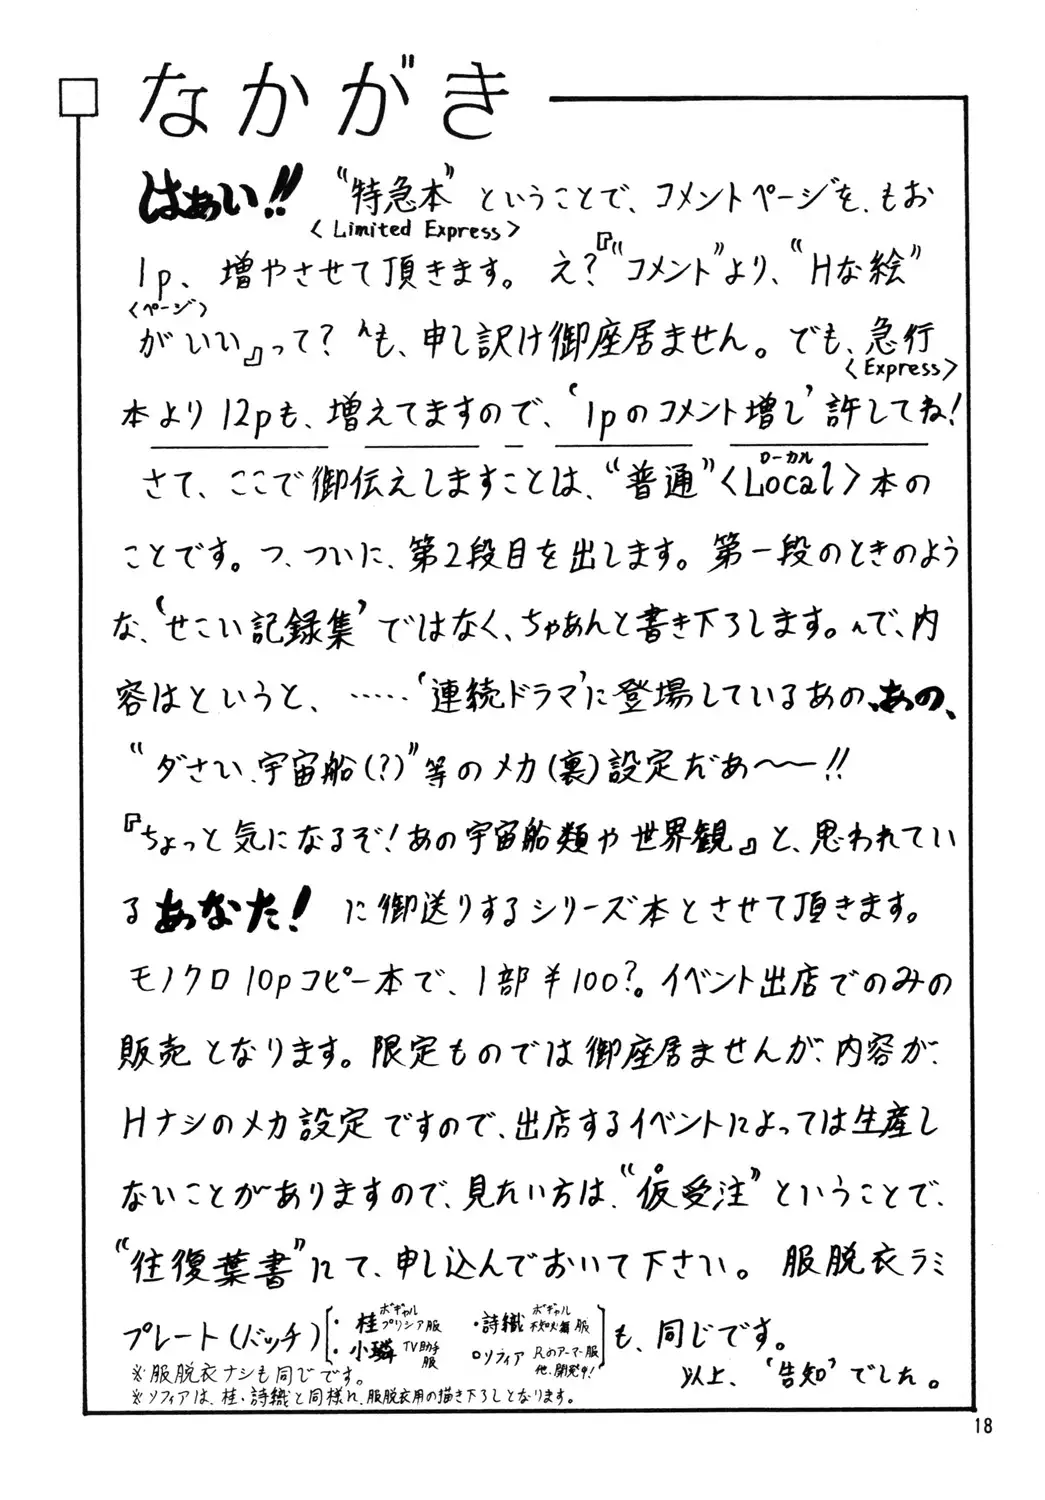 なかがき
はぁい!! “特急本”ということで、コメントページを、もお
〈Limited Express〉
1p、増やさせて頂きます。え?『“コメント”より、“Hな絵”
〈ページ〉
がいい』って? んも、申し訳け御座居ません。でも、急行
〈Express〉
本より12pも、増えてますので、‘1pのコメント増し’許してね!
さて、ここで御伝えしますことは、“普通”〈Local〉本の
ローカル
ことです。つ、ついに、第2段目を出します。第一段のときのよう
な、‘せこい記録集’ではなく、ちゃあんと書き下ろします。んで、内
容はというと、……‘連続ドラマ’に登場しているあの、あの、
“ダさい、宇宙船(?)”等のメカ(裏)設定だあ〜〜!!
『ちょっと気になるぞ!あの宇宙船類や世界観』と、思われてい
るあなた! に御送りするシリーズ本とさせて頂きます。
モノクロ10pコピー本で、1部¥100?。イベント出店でのみの
販売となります。限定ものでは御座居ませんが、内容が、
Hナシのメカ設定ですので、出店するイベントによっては生産し
ないことがありますので、見たい方は、“仮受注”ということで、
“往復葉書”にて、申し込んでおいて下さい。服脱衣ラミ
プレート(バッチ)
・桂 ボギャル プリシア服
・詩織 ボギャル 不知火舞服
・小璘 TV助手服
○ソフィア Rのアーマー服 他、開発中!
も、同じです。
※服脱衣ナシも同じです。
以上、‘告知’でした。
※ソフィアは、桂・詩織と同様に、服脱衣用の描き下ろしとなります。
18